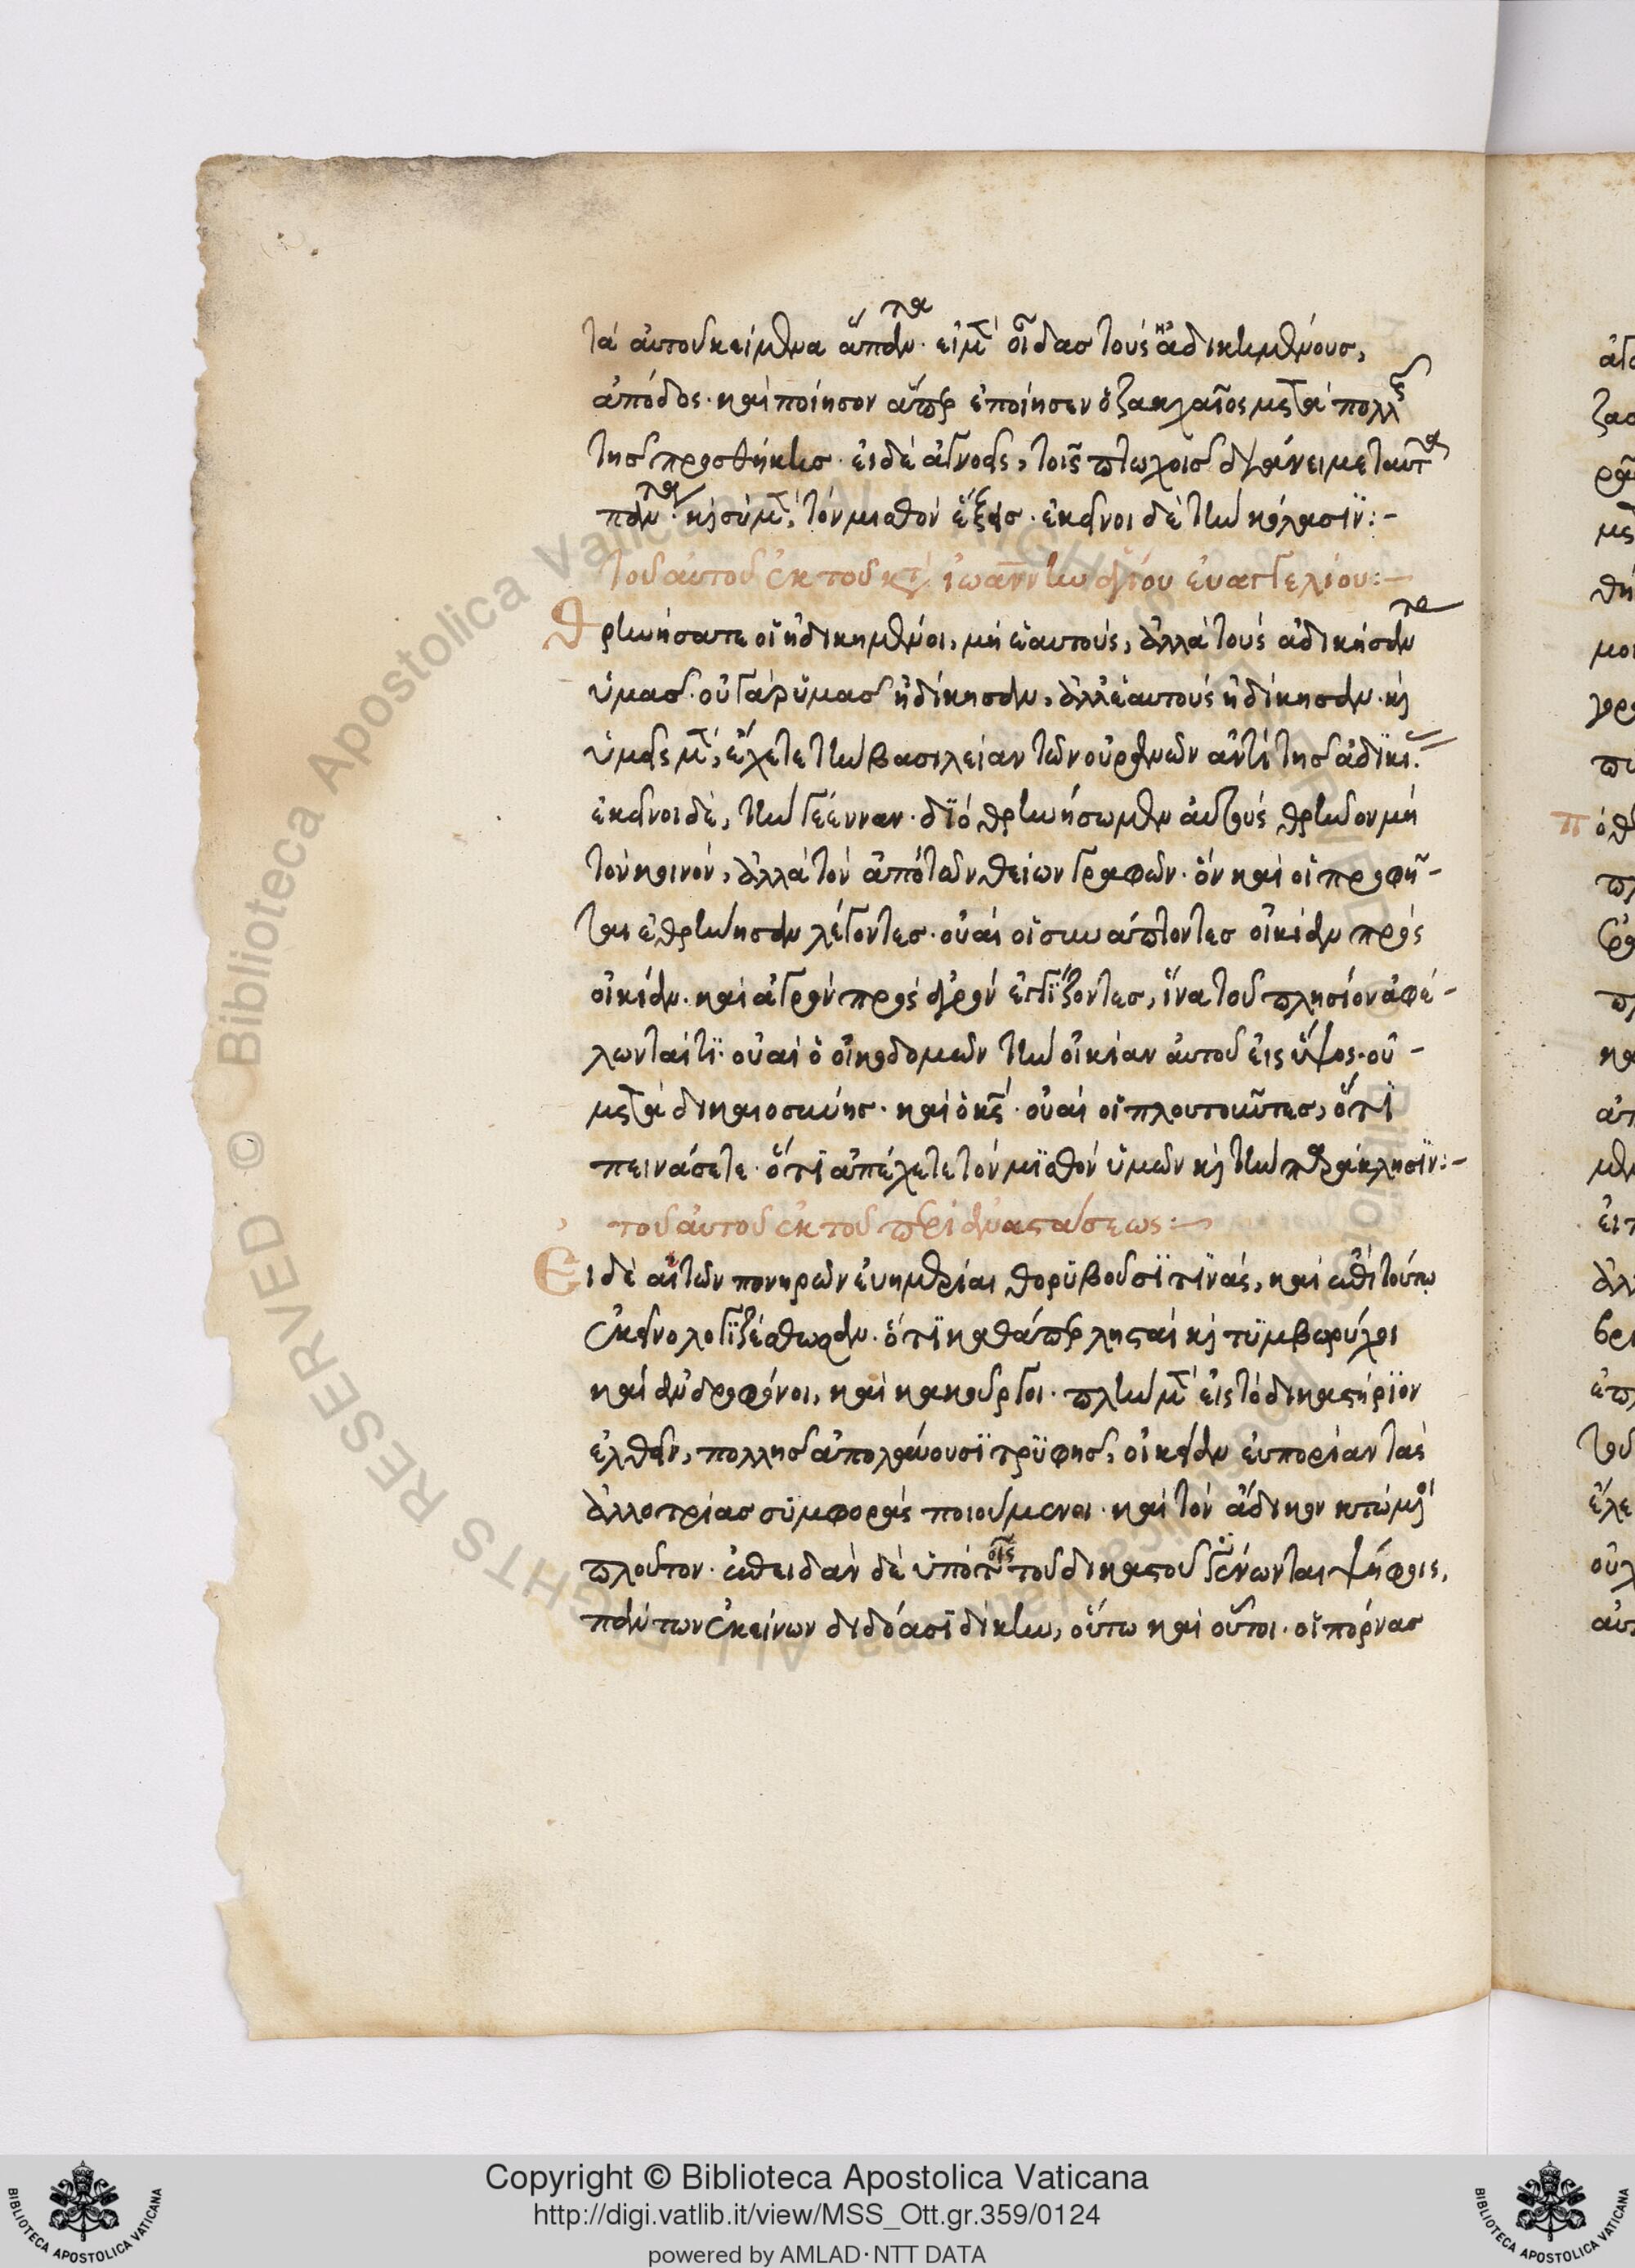 τά αὐτοῦ κείμενα ἅπαντα· εἰ μὲν οἶδας τοὺς ἠδικημένους,
ἀπόδος· καὶ ποίησον ἅπερ ἐποίησεν ὁ ζακχαῖος μετὰ πολλῆς
τῆς προσθήκης· εἰ δὲ ἀγνοεῖς, τοῖς πτωχοῖς διάνειμε ταῦτα
πάντα· καὶ σὺ μὲν, τὸν μισθὸν ἕξεις· ἐκεῖνοι δὲ τὴν κόλασιν:-
τοῦ αὐτοῦ ἐκ τοῦ κατὰ ἰωάννην ἁγίου εὐαγγελίου:-
Θρηνήσατε οἱ ἠδικημένοι, μὴ ἑαυτούς, ἀλλὰ τοὺς ἀδικήσαντας
ὑμᾶς· οὐ γὰρ ὑμᾶς ἠδίκησαν, ἀλλ' ἑαυτοὺς ἠδίκησαν· καὶ
ὑμεῖς μὲν, ἔχετε τὴν βασιλείαν τῶν οὐρανῶν ἀντὶ τῆς ἀδικίας·
ἐκεῖνοι δὲ, τὴν γέενναν· διὸ θρηνήσωμεν αὐτοὺς θρῆνον μὴ
τὸν κοινὸν, ἀλλὰ τὸν ἀπὸ τῶν θείων γραφῶν· ὃν καὶ οἱ προφῆ-
ται ἐθρήνησαν λέγοντες· οὐαὶ οἱ συνάπτοντες οἰκίαν πρὸς
οἰκίαν· καὶ ἀγρὸν πρὸς ἀγρὸν ἐγγίζοντες, ἵνα τοῦ πλησίον ἀφέ-
λωνταί τι· οὐαὶ ὁ οἰκοδομῶν τὴν οἰκίαν αὐτοῦ εἰς ὕψος· οὐ-
μετὰ δικαιοσύνης· καὶ ὁ κς· οὐαὶ οἱ πλουτοῦντες, ὅτι
πεινάσετε· ὅτι ἀπέχετε τὸν μισθὸν ὑμῶν καὶ τὴν παράκλησιν:-
τοῦ αὐτοῦ ἐκ τοῦ περὶ ἀναστάσεως:-
Εἰ δὲ αἱ τῶν πονηρῶν εὐημερίαι θορυβοῦσί τινάς, καὶ ἐπὶ τούτω
ἐκεῖνο λογιζέσθωσαν· ὅτι καθάπερ λησταὶ καὶ τυμβωρύχοι
καὶ ἀνδροφόνοι, καὶ κακοῦργοι· πρὶν μὲν εἰς τὸ δικαστήριον
ἐλθεῖν, πολλῆς ἀπολαύουσι τρυφῆς, οἰκείαν εὐπορίαν τὰς
ἀλλοτρίας συμφορὰς ποιούμενοι· καὶ τὸν ἄδικον κτώμενοι
πλοῦτον· ἐπειδὰν δὲ ὑπὸ ταῖς τοῦ δικαστοῦ γένωνται ψήφοις,
πάντων ἐκείνων διδόασι δίκην, οὕτω καὶ οὗτοι· οἱ πόρνας